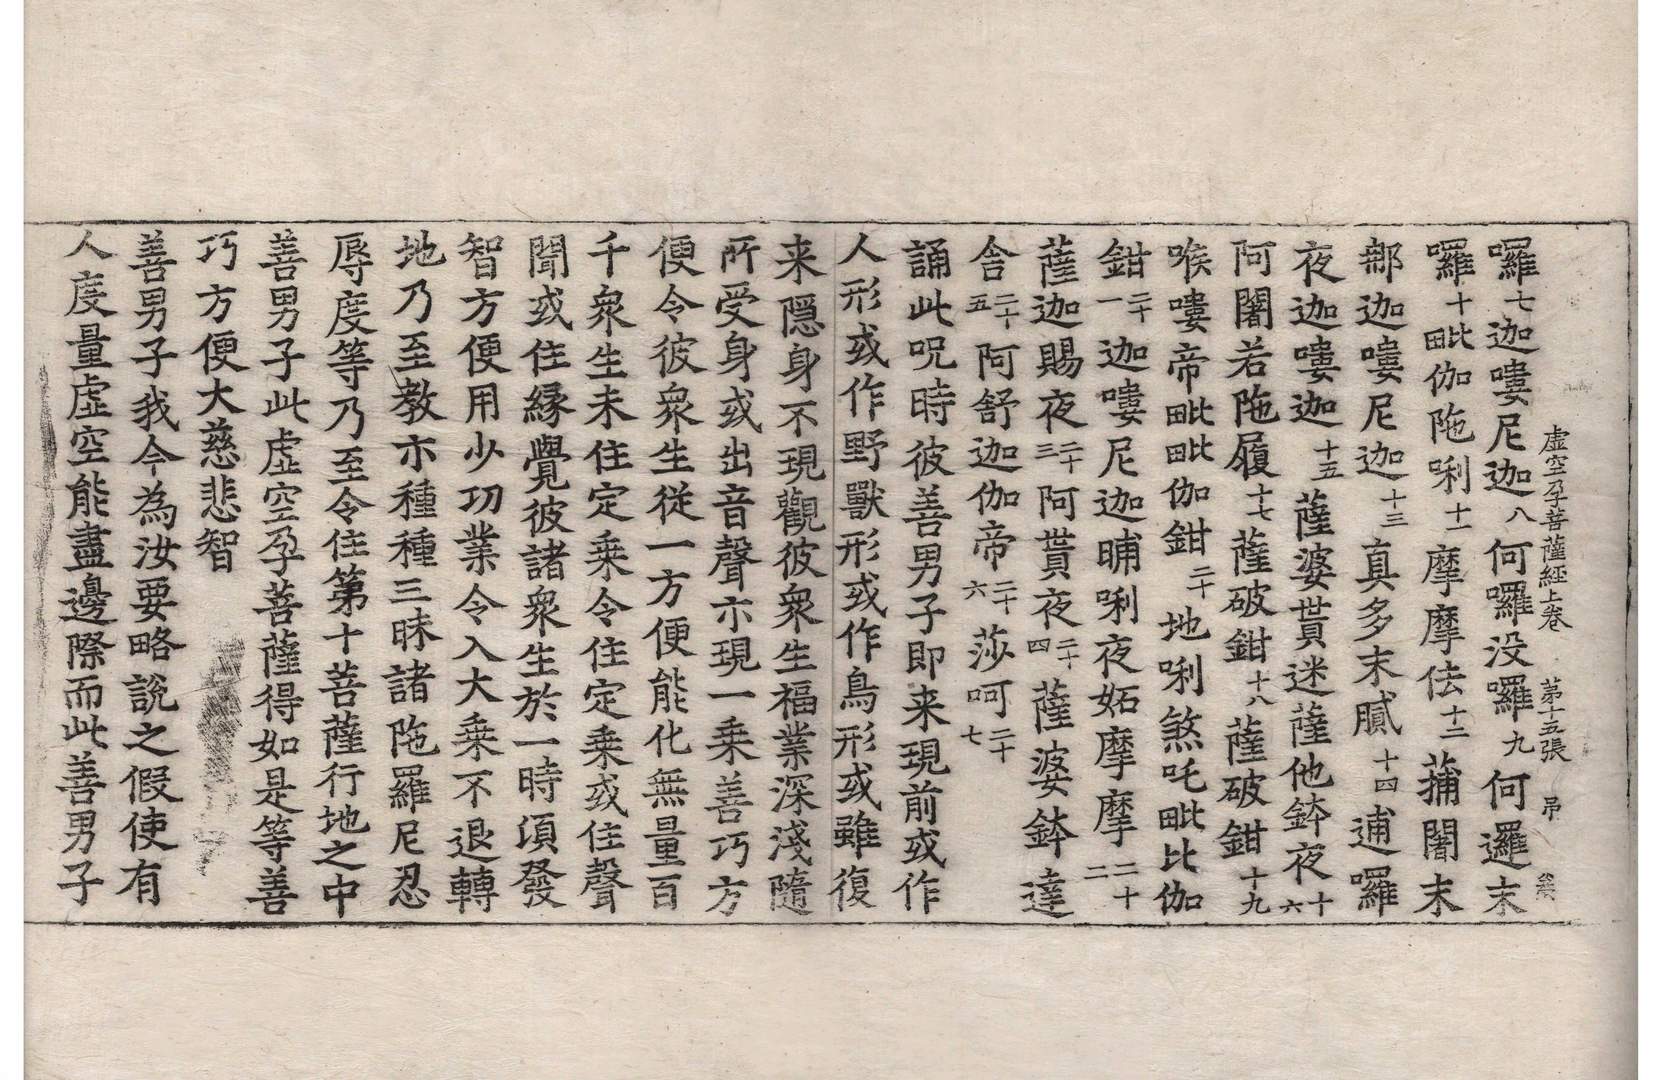 虛空孕菩薩經上卷 第十五張 弔
囉七迦嘍尼迦八何囉没囉九何邏末
囉十毗伽陁唎十一摩摩佉十二蒱闍末
那迦嘍尼迦十三真多末膩十四逋囉
夜迦嘍迦十五薩婆貰迷薩他鉢夜十六
阿闍若陁履十七薩破鉗十八薩破鉗十九
喉嘍帝毗毗伽鉗二十地唎煞吒毗比伽
鉗二十一迦嘍尼迦晡唎夜妬摩摩二十二
薩迦賜夜二十三阿貰夜二十四薩婆鉢達
舍二十五阿舒迦伽帝二十六莎呵二十七
誦此呪時彼善男子即来現前或作
人形或作野獸形或作鳥形或雖復
来隱身不現觀彼衆生福業深淺隨
所受身或出音聲亦現一乗善巧方
便令彼衆生從一方便能化無量百
千衆生未住定乗令住定乗或住聲
聞或住縁覺彼諸衆生於一時湏發
智方便用少功業令入大乗不退轉
地乃至教亦種種三昧諸陁羅尼忍
辱度等乃至令住第十菩薩行地之中
善男子此虛空孕菩薩得如是等善
巧方便大慈悲智
善男子我今為汝要略說之假使有
人度量虛空能盡邊際而此善男子